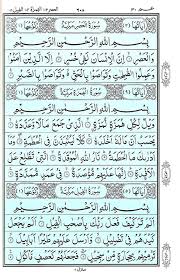 سُورَةُ الْعَصْرِ
بِسْمِ اللهِ الرَّحْمٰنِ الرَّحِيْمِ
وَالْعَصْرِ اِنَّ الْاِنْسَانَ لَفِيْ خُسْرٍ اِلَّا الَّذِيْنَ اٰمَنُوْا
وَعَمِلُوا الصّٰلِحٰتِ وَتَوَاصَوْا بِالْحَقِّ وَتَوَاصَوْا بِالصَّبْرِ
سُورَةُ الْهُمَزَةِ
بِسْمِ اللهِ الرَّحْمٰنِ الرَّحِيْمِ
وَيْلٌ لِّكُلِّ هُمَزَةٍ لُّمَزَةٍ الَّذِيْ جَمَعَ مَالًا وَّعَدَّدَهٗ
يَحْسَبُ اَنَّ مَالَهٗٓ اَخْلَدَهٗ كَلَّا لَيُنْۢبَذَنَّ فِي الْحُطَمَةِ
وَمَآ اَدْرٰىكَ مَا الْحُطَمَةُ نَارُ اللهِ الْمُوْقَدَةُ الَّتِيْ
تَطَّلِعُ عَلَى الْاَفْـِٕدَةِ اِنَّهَا عَلَيْهِمْ مُّؤْصَدَةٌ فِيْ عَمَدٍ مُّمَدَّدَةٍ
سُورَةُ الْفِيْلِ
بِسْمِ اللهِ الرَّحْمٰنِ الرَّحِيْمِ
اَلَمْ تَرَ كَيْفَ فَعَلَ رَبُّكَ بِاَصْحٰبِ الْفِيْلِ اَلَمْ يَجْعَلْ
كَيْدَهُمْ فِيْ تَضْلِيْلٍ وَّاَرْسَلَ عَلَيْهِمْ طَيْرًا اَبَابِيْلَ
تَرْمِيْهِمْ بِحِجَارَةٍ مِّنْ سِجِّيْلٍ فَجَعَلَهُمْ كَعَصْفٍ مَّاْكُوْلٍ